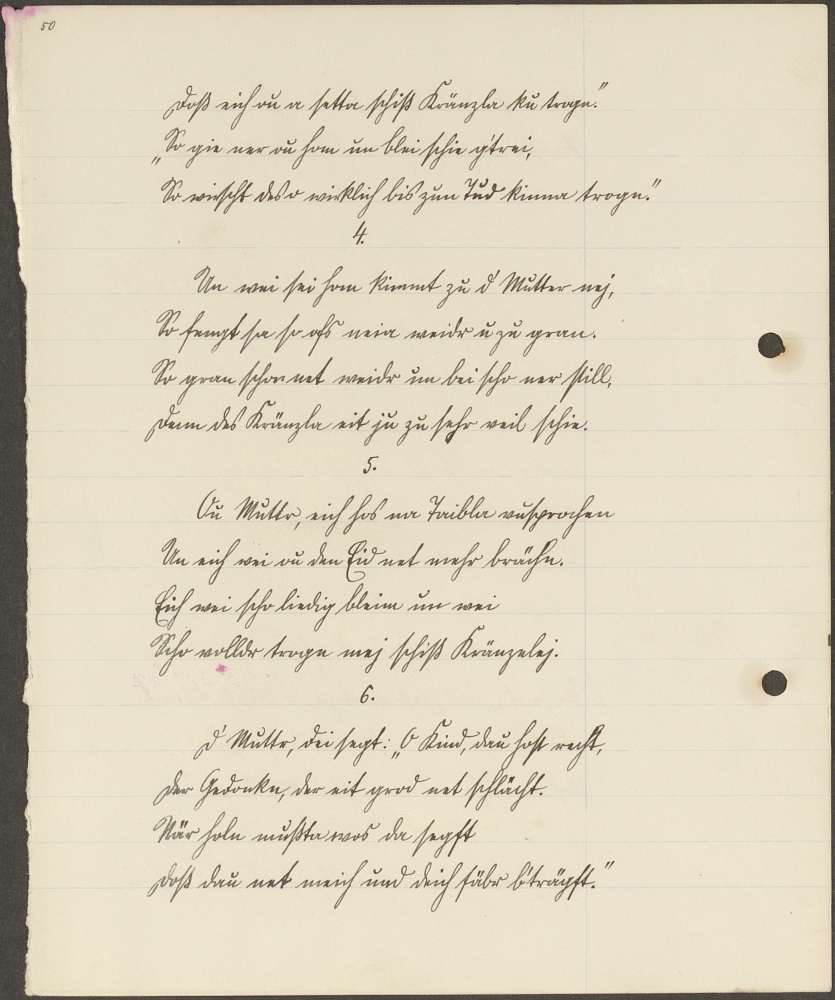 50
Doß eich ou a setta schiß Kränzla ku trogn."
„So gie ner ou hom un blei schie g'trei,
So wirscht des o wirklich bis zun Tud kinna trogn."
4.
Un wei sei hom kimmt zu d' Mutter nej,
So fengt sa so ofs neia weidr u zu gran.
So gran schon net weidr un bei scho ner still,
Denn des Kränzla eit ju zu sehr veil schie.
5.
Ou Muttr, eich hos na Taibla vusprochen
Un eich wei ou den Eid net mehr brächn.
Eich wei scho liedig bleim un wei
Scho volldr trogn mej schiß Kränzelej.
6.
D' Muttr, dei segt: „O Kind, dau host recht,
Der Gedonkn, der eit grod net schlächt.
När holn mußta wos da segst
Doß dau net meich und deich sälbr b'trägst."